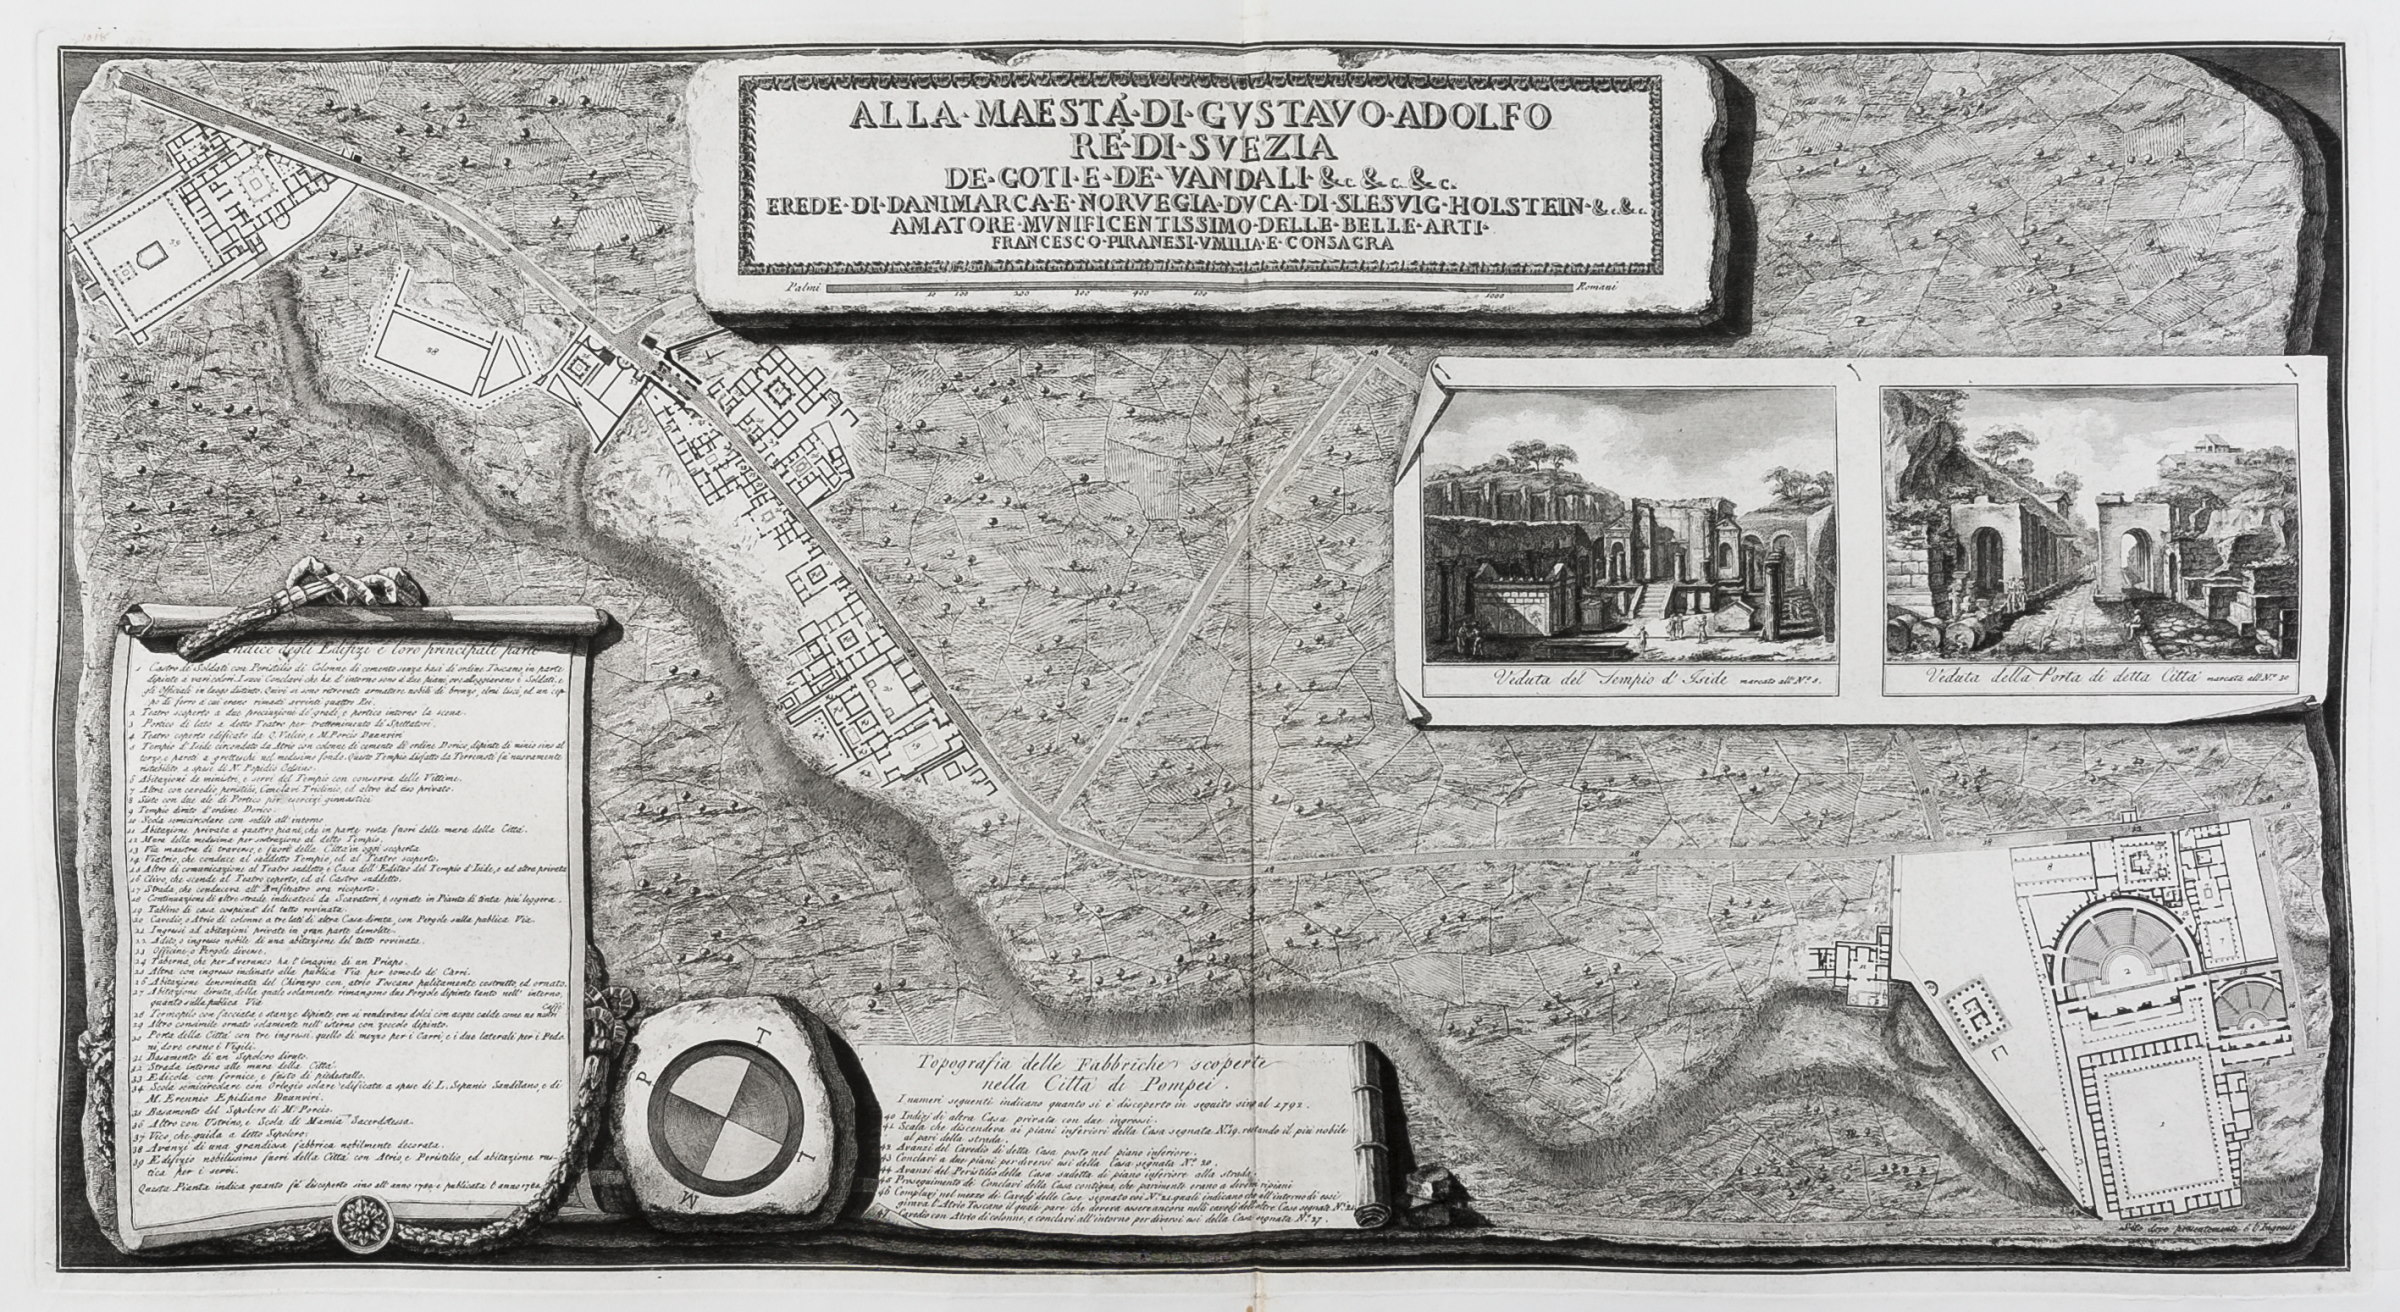 ALLA·MAESTÁ·DI·GVSTAVO·ADOLFO
RÉ·DI·SVEZIA
DE·GOTI·E·DE·VANDALI·&c. &c. &c.
EREDE·DI·DANIMARCA·E·NORVEGIA·DVCA·DI·SLESVIG·HOLSTEIN·&c.&c.
AMATORE·MVNIFICENTISSIMO·DELLE·BELLE·ARTI·
FRANCESCO·PIRANESI·VMILIA·E·CONSAGRA
Palmi 10 100 200 300 400 1000 Romani
Veduta del Tempio d' Iside marcato all' N.º 5.
Veduta della Porta di detta Città marcata all' N.º 30
Indice degli Edifizi e loro principali parti
1 Castro di Soldati con Peristilio di Colonne di cemento senza basi di ordine Toscano in parte
dipinte a vari colori. I suoi Conclavi che ha d' intorno sono a due piani, ove alloggiavano i Soldati, e
gli Officiali in luogo distinto. Quivi si sono ritrovate armature nobili di bronzo, elmi, ed un cep-
po di ferro a cui erano rimasti avvinti quattro Rei.
2 Teatro scoperto a due precinzioni de' gradi, e portico intorno la scena.
3 Portico di lato a detto Teatro per trattenimento de' Spettatori.
4 Teatro coperto edificato da Q. Valcio, e M. Porcio Duunviri
5 Tempio d' Iside circondato da Atrio con colonne di cemento di ordine Dorico, dipinte di minio sino al
terzo, e pareti a grotteschi nel medesimo fondo. Questo Tempio disfatto da Terremoti fu nuovamente
ristabilito a spese di N. Popidio Celsino.
6 Abitazioni de ministri, e servi del Tempio con conserva delle Vittime.
7 Altra con cavedio peristilj, Conclavi Triclinio, ed altro ad uso privato.
8 Sisto con due ale di Portico per esercizj ginnastici
9 Tempio diruto d' ordine Dorico.
10 Scola semicircolare con sedile all' interno
11 Abitazione privata a quattro piani, che in parte resta fuori delle mura della Città.
12 Mura della medesima per sostruzione al detto Tempio.
13 Via maestra di traverso, e fuori della Città in oggi scoperta
14 Viatrio, che conduce al suddetto Tempio, ed al Teatro scoperto.
15 Altre di comunicazione al Teatro suddetto e Casa dell' Edituo del Tempio d' Iside, e ad altra privata
16 Clivo, che scende al Teatro coperto, ed al Castro suddetto.
17 Strada che conduceva all' Anfiteatro ora ricoperto.
18 Continuazioni di altre strade, indicateci da Scavatori, e segnate in Pianta di tinta piú leggera.
19 Tablino di casa cospicua del tutto rovinata.
20 Cavedio, e Atrio di colonne a tre lati di altra Casa diruta, con Pergole sulla publica Via.
21 Ingressi ad abitazioni private in gran parte demolite.
22 Adito, o ingresso nobile di una abitazione del tutto rovinata.
23 Officine, o Pergole diverse.
24 Taberna, che per Averunco ha l' imagine di un Priapo.
25 Altra con ingresso inclinato alla publica Via per comodo de' Carri.
26 Abitazione denominata del Chirurgo con atrio Toscano pulitamente costrutto, ed ornato.
27 Abitazione diruta, della quale solamente rimangono due Pergole dipinte tanto nell' interno,
quanto sulla publica Via
28 Termopilo con facciata e stanze dipinte, ove si vendevano dolci con acque calde come ne nostri Caffé
29 Altro consimile ornato solamente nell' esterno con zoccolo dipinto.
30 Porta della Città con tre ingressi quello di mezzo per i Carri, e i due laterali per i Pedo-
ni, dove erano i Vigili.
31 Basamento di un Sepolcro diruto.
32 Strada intorno alle mura della Città.
33 Edicola con fornice, e fusto di piedestallo.
34 Scola semicircolare con Orlogio solare edificata a spese di L. Sepunio Sandilano, e di
M. Erennio Epidiano Duunviri.
35 Basamento del Sepolcro di M. Porcio.
36 Altro con Ustrino, e Scola di Mamia Sacerdotessa.
37 Vico, che guida a detto Sepolcro.
38 Avanzi di una grandiosa fabbrica nobilmente decorata.
39 Edifizio nobilissimo fuori della Città con Atrio, e Peristilio, ed abitazione rus-
tica per i servi.
Questa Pianta indica quanto fu discoperto sino all' anno e publicata l' anno
P T L M
Topografia delle Fabbriche scoperte
nella Città di Pompei.
I numeri seguenti indicano quanto si é discoperto in seguito sino al 1792.
40 Indizj di altra Casa privata con due ingressi.
41 Scala che discendeva ai piani inferiori della Casa segnata N.º 19. restando il piú nobile
al pari della strada.
42 Avanzi del Cavedio di detta Casa posto nel piano inferiore.
43 Conclavi a due piani per diversi usi della Casa segnata N.º 20.
44 Avanzi del Peristilio della Casa sudetta di piano inferiore alla strada.
45 Proseguimento de' Conclavi della Casa contigua, che parimente erano a diversi piani
46 Compluvj nel mezzo de Cavedj delle Case segnate coi N.º 21. quali indicano che all' intorno di essi
girava l' Atrio Toscano il quale pare che dovera essere ancora nelli cavedj dell' altre Case segnate N.º 21.
47 Cavedio con Atrio di colonne, e conclavi all' intorno per diversi usi della Casa segnata N.º 27.
Sito dove presentemente é l' Ingresso